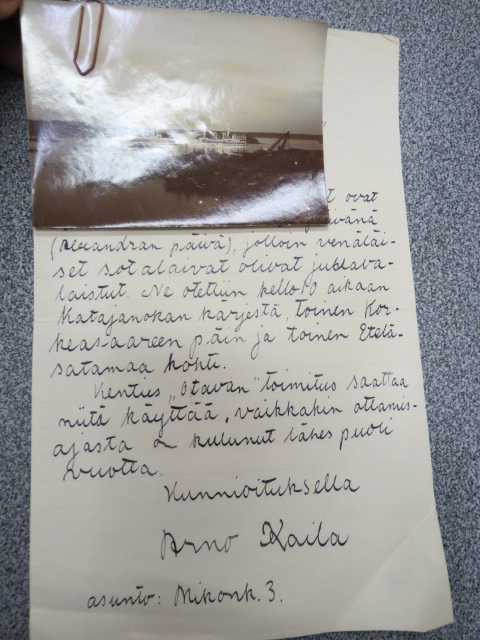 t ovat
vänä
(Alexandran päivä), jolloin venäläi-
set sotalaivat olivat juhlava-
laistut. Ne otettiin kello 10 aikaan
Katajanokan kärjestä, toinen Kor-
keasaareen päin ja toinen Etelä-
satamaa kohti.
Kenties „Otavan" toimitus saattaa
niitä käyttää, vaikkakin ottamis-
ajasta on kulunut lähes puoli
vuotta.
Kunnioituksella
Arno Kaila
asunto: Mikonk. 3.